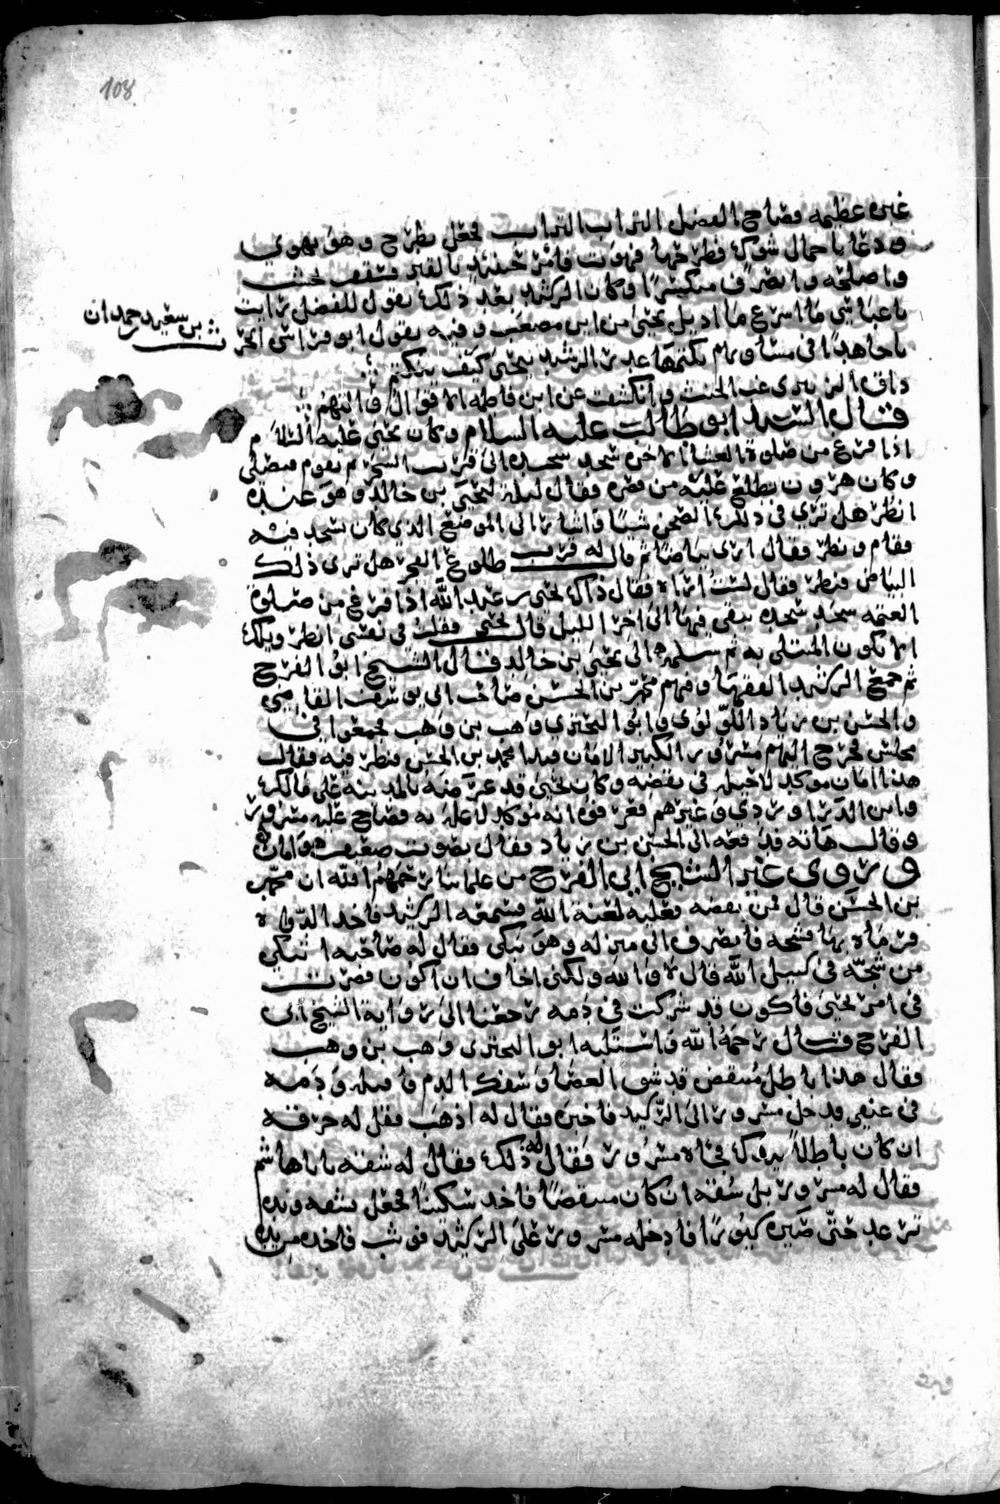 108
غبره عظيمه فصاح الفضل التراب التراب فجعل يطرح وهو يهوي
ودعا باحمال شوك فطرحها فهوت فامر حينئذ بالقبر فسقف بخشب
واصلحه وانصرف منكسرا وكان الرشيد بعد ذلك يقول للفضل رايت
يا عباسي ما اسرع ما اديل يحيى من ابن مصعب وفيه يقول ابو فراس الحرث
بن سعيد بن حمدان
يا جاهدا في مساويهم يكتمها غدر الرشيد بيحيى كيف ينكتم
ذاق الزبيري غب الحنث وانكشفت عن ابن فاطمة الاقوال والتهم
قال السيد ابو طالب عليه السلام وكان يحيى عليه السلام
اذا فرغ من صلوة العشا الاخره سجد سجده الى قريب السحر ثم يقوم فيصلي
وكان هرون يطلع عليه من قصره فقال ليلة ليحيى بن خالد وهو عنده
انظر هل ترى في ذلك الصحن شيئا واشار الى الموضع الذي كان يسجد فيه
فقام ونظر فقال ارى بياضا ثم قال له قرب طلوع الفجر هل ترى ذلك
البياض فنظر فقال لست اراه فقال ذاك يحيى بن عبدالله اذا فرغ من صلوة
العتمه سجد سجده يبقى فيها الى اخر الليل قال يحيى فقلت في نفسي انظر ويلك
الا تكون المبتلى به ثم سلمه الى يحيى بن خالد قال الشيخ ابو الفرج
ثم جمع الرشيد الفقها وفيهم محمد بن الحسن صاحب ابي يوسف القاضي
والحسن بن زياد اللولوي وابو البختري وهب بن وهب فجمعوا في
مجلس فخرج اليهم مسرور الكبير بالامان فبدا محمد بن الحسن فنظر فيه فقال
هذا امان موكد لا حيله في نقضه وكان يحيى قد عرضه بالمدينه على مالك
وابن الدراوردي وغيرهم فعرفوه انه موكد لا علة به فصاح عليه مسرور
وقال هاته فدفعه الى الحسن بن زياد فقال بصوت ضعيف هو امان
وروى غير الشيخ ابي الفرج من علمائنا رحمهم الله ان محمد
بن الحسن قال من نقضه فعليه لعنة الله فسمعه الرشيد فاخذ الدواه
فرماه بها فشجه فانصرف الى منزله وهو يبكي فقال له صاحبه اتبكي
من شجه في سبيل الله قال لا والله ولكني اخاف ان اكون قصرت
في امر يحيى فاكون قد شركت في دمه رجعنا الى رواية الشيخ ابي
الفرج قال رحمه الله واستلبه ابو البختري وهب بن وهب
فقال هذا باطل منتقض قد شق العصا وسفك الدم فاقتله ودمه
في عنقي فدخل مسرور الى الرشيد فاخبره فقال له اذهب فقل له خرقه
ان كان باطلا بيدك فجاه مسرور فقال له ذلك فقال له شقه يا ابا هاشم
فقال له مسرور بل شقه ان كان منتقضا فاخذ سكينا فجعل يشقه ويده
ترعد حتى صيره سيورا فادخله مسرور على الرشيد فوثب فاخذه من يده